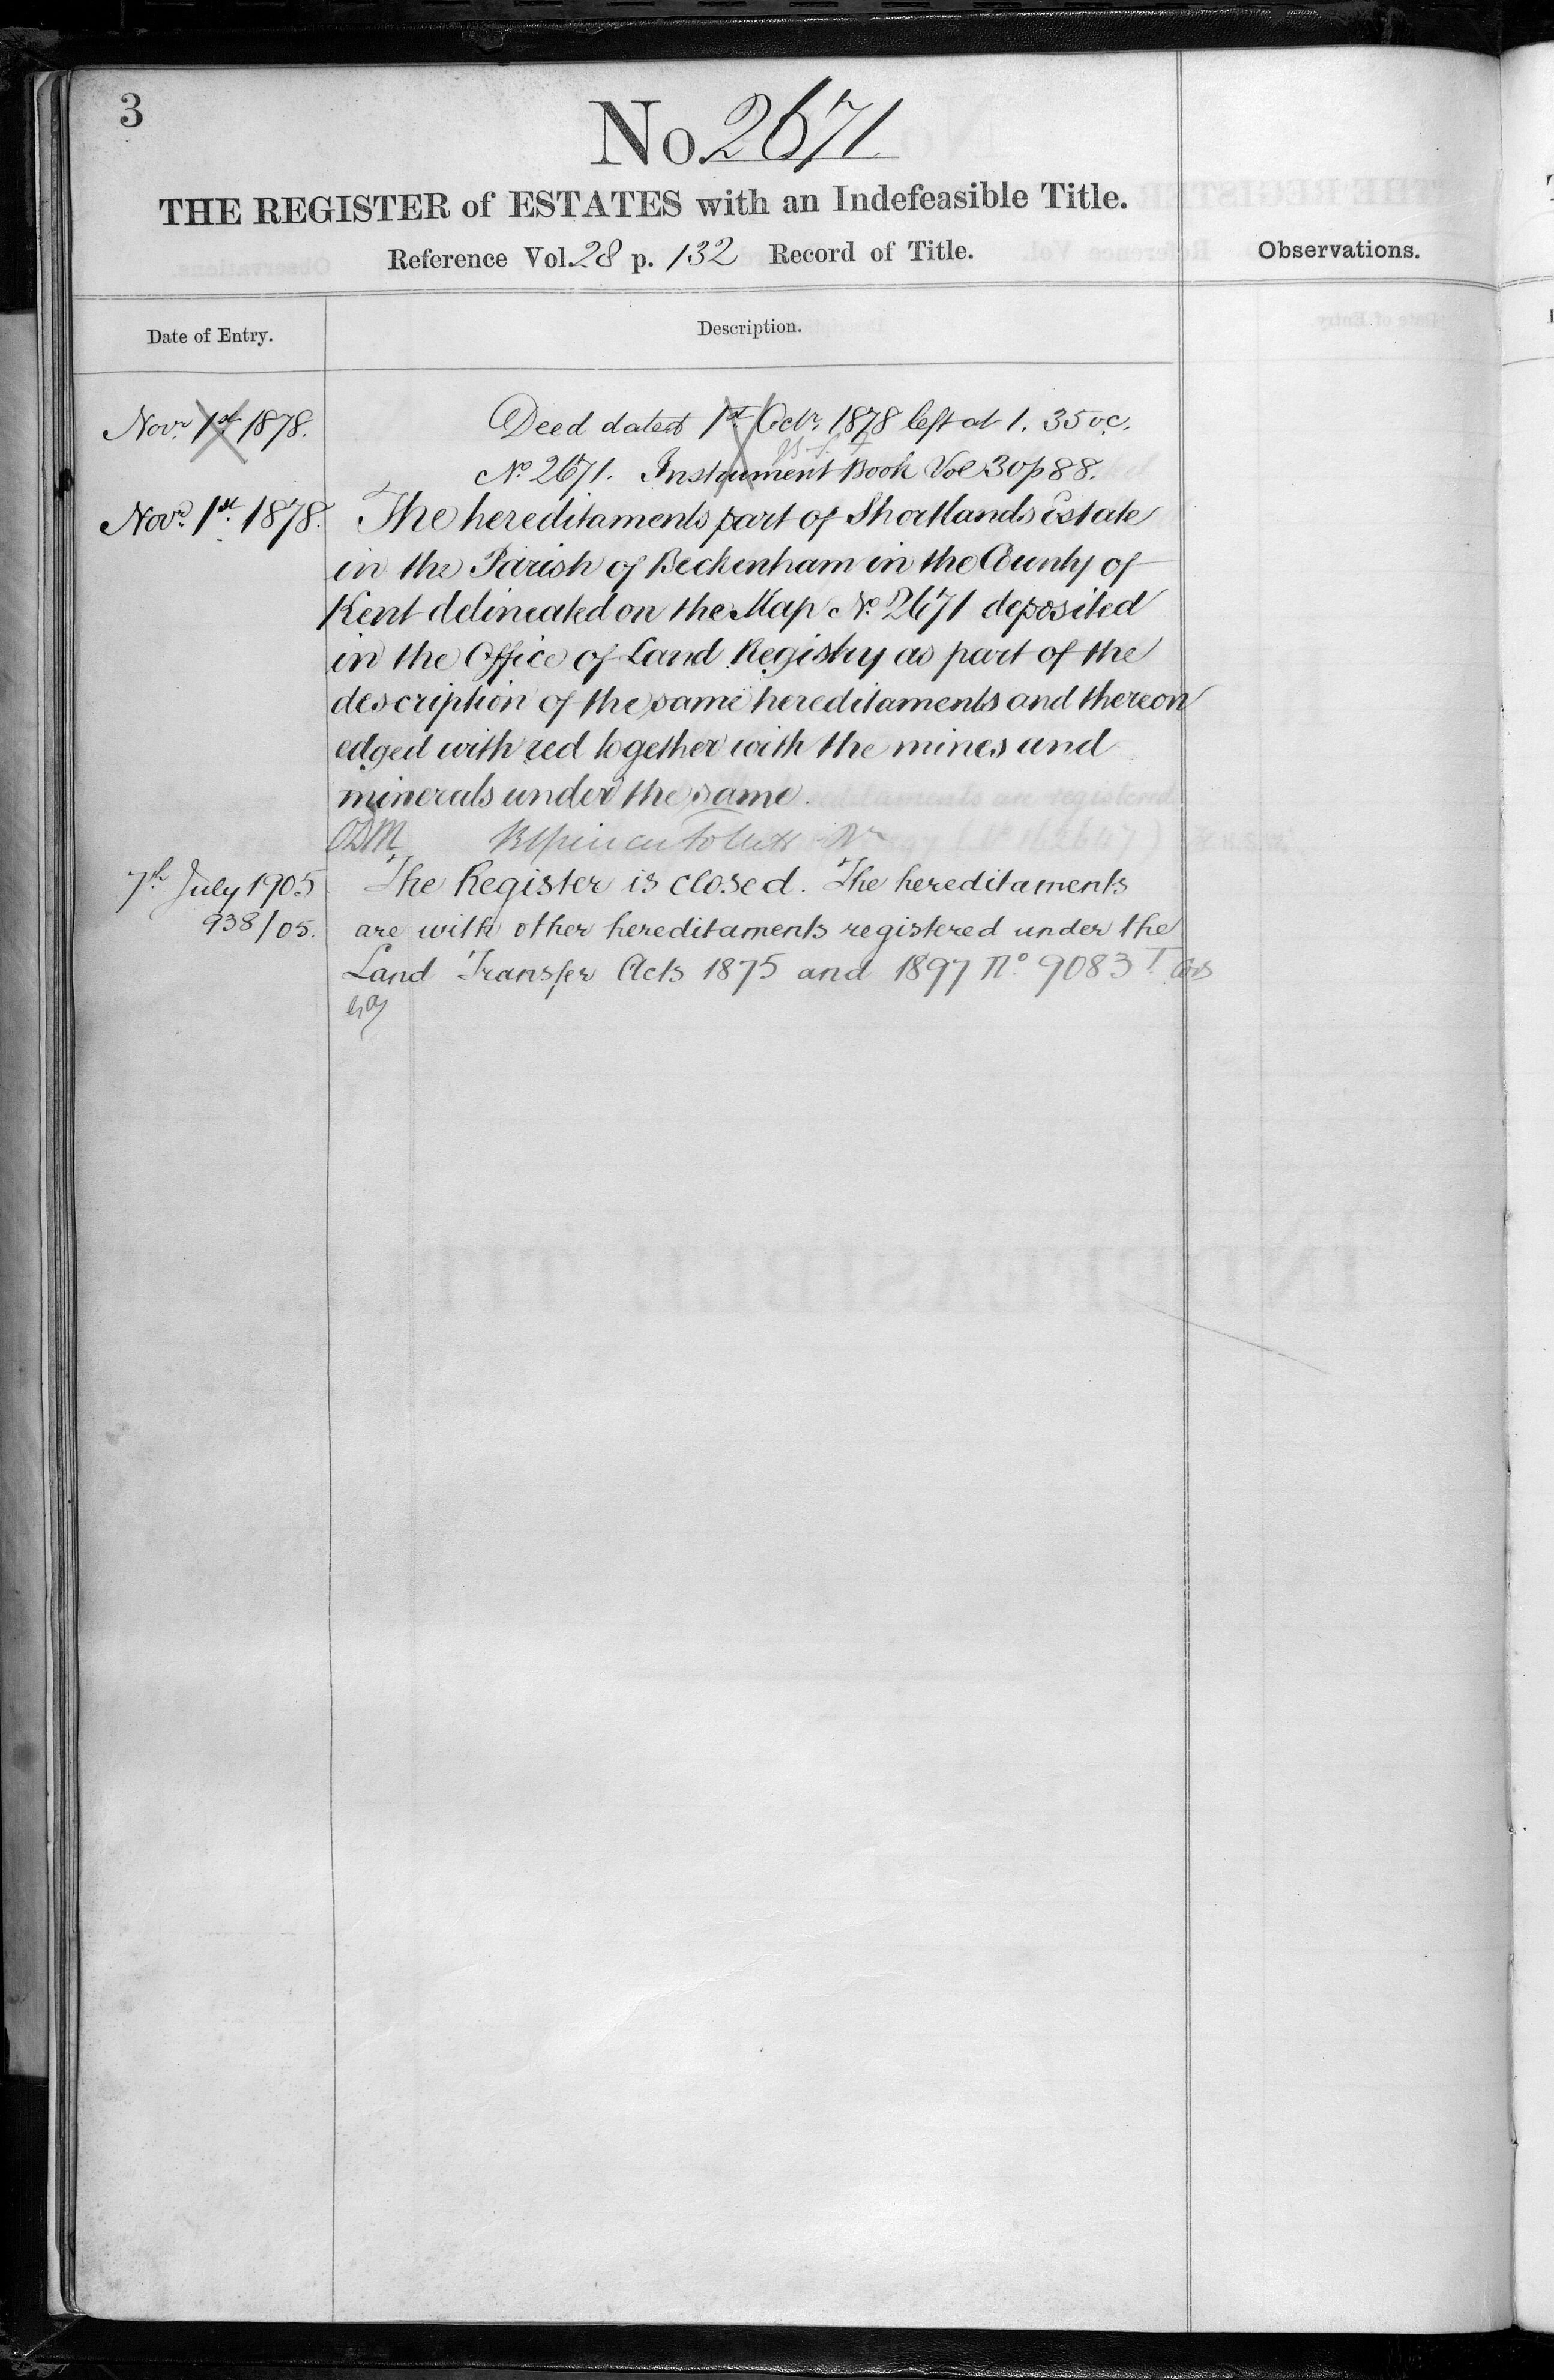 3
No. 2671.
THE REGISTER of ESTATES with an Indefeasible Title.
Reference Vol. 28 p. 132 Record of Title.
Observations.
Date of Entry.
Description.
Novr. 1st 1878.
Deed dated 1st Octr. 1878 left at 1. 35 oc.
No. 2671. Instrument Book Vol 30 p 88.
Novr. 1st. 1878.
The hereditaments part of Shortlands Estate
in the Parish of Beckenham in the County of
Kent delineated on the Map No. 2671 deposited
in the Office of Land Registry as part of the
description of the same hereditaments and thereon
edged with red together with the mines and
minerals under the same.
7th July 1905
938/05.
The Register is closed. The hereditaments
are with other hereditaments registered under the
Land Transfer Acts 1875 and 1897 No. 9083